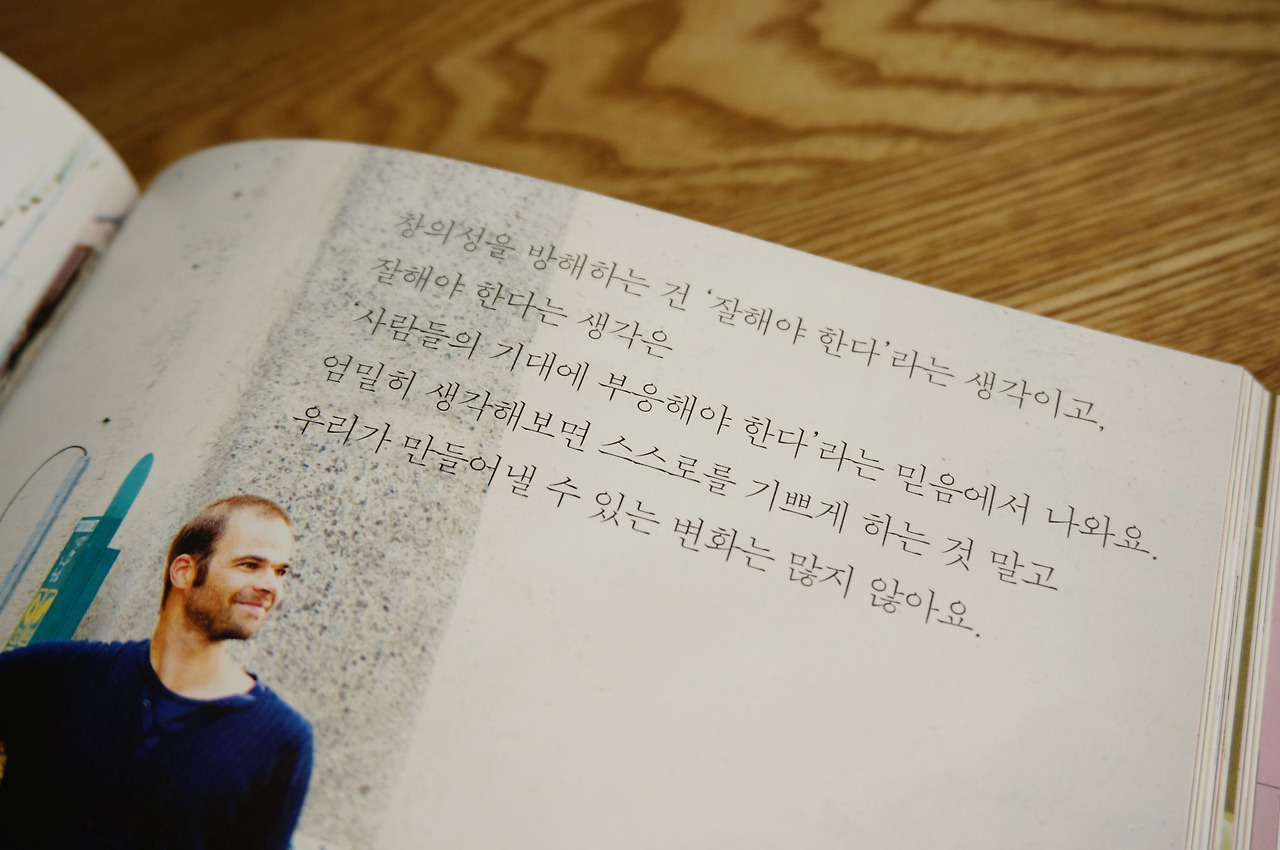 창의성을 방해하는 건 ‘잘해야 한다’라는 생각이고,
잘해야 한다는 생각은
‘사람들의 기대에 부응해야 한다’라는 믿음에서 나와요.
엄밀히 생각해보면 스스로를 기쁘게 하는 것 말고
우리가 만들어낼 수 있는 변화는 많지 않아요.